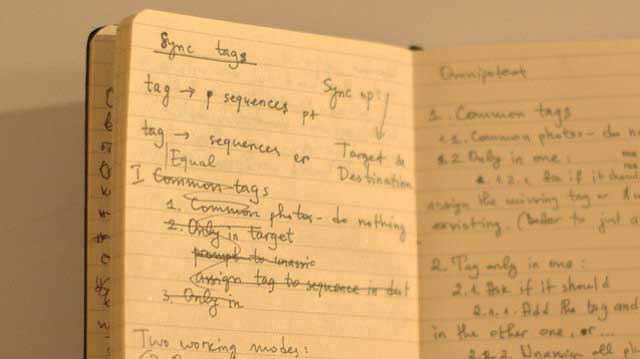 Sync tags
tag → sequences pt
Sync op:
tag → sequences er
Target &
Destination
Equal
I Common tags
1. Common photos - do nothing
2. Only in target
prompt to unassic
assign tag to sequence in dest
3. Only in
Two working modes:
Omnipotent
1. Common tags
1.1. Common photos - do n
1.2 Only in one:
1.2.1. Ask if it should
assign the missing tag or
existing. (
to just a
2. Tag only in one:
2.1. Ask if it should
2.1.1. Add the tag and
in the other one, or ...
2.1.2. Unassign all ph